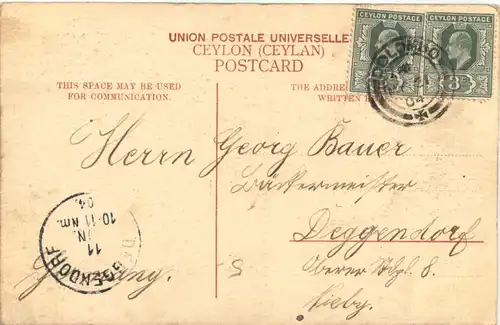 UNION POSTALE UNIVERSELLE
CEYLON (CEYLAN)
POSTCARD
THIS SPACE MAY BE USED
FOR COMMUNICATION.
THE ADDRE
WRITTEN
CEYLON POSTAGE
CEYLON POSTAGE
COLOMBO
04
Herrn Georg Bauer
Bäckermeister
Deggendorf
Oberer Stdtpl. 8.
Germany
DEGGENDORF
11
JUN.
04.
10-11 Nm.